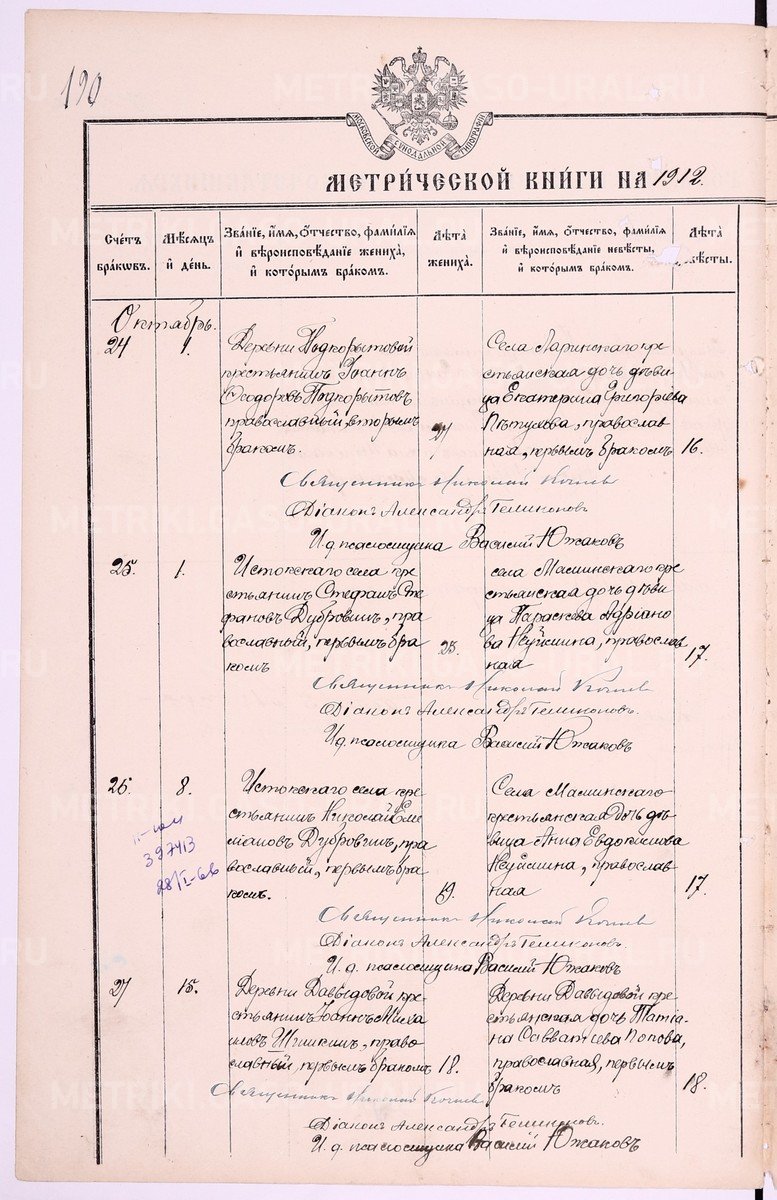 190
МОСКОВСКОЙ СѴНОДАЛЬНОЙ ТИПОГРАФІИ
МЕТРИ́ЧЕСКОЙ КНИ́ГИ НА 1912.
Счетъ бра́кѡвъ.
Мѣсѧцъ и де́нь.
Зва́нїе, и́мѧ, ѻ́тчество, фами́лїѧ и вѣроисповѣ́данїе жениха̀, и кото́рымъ бра́комъ.
Лѣта̀ жениха̀.
Зва́нїе, и́мѧ, ѻ́тчество, фами́лїѧ и вѣроисповѣ́данїе невѣ́сты, и кото́рымъ бра́комъ.
Лѣта̀ вѣ́сты.
Октябрь.
24 1.
Деревни Подкорытовой
крестьянинъ Іоаннъ
Ѳеодоровъ Подкорытовъ
православный, вторымъ
бракомъ.
27
Села Ларинскаго кре-
стьянская дочь дѣви-
ца Екатерина Григоріева
Пѣтухова, православ
ная, первымъ бракомъ 16.
Священникъ Николай
Діаконъ Александръ
И.д. псаломщика Василій Южаковъ
25. 1.
Истокскаго села кре-
стьянинъ Стефанъ Сте
фановъ Дубровинъ, пра
вославный, первымъ бра
комъ
25.
села Маминскаго кре
стьянская дочь дѣви
ца Параскева Адріано
ва Неуймина, православ
ная 17.
Священникъ Николай
Діаконъ Александръ
И.д. псаломщика Василій Южаковъ
26. 8.
397413
Истокскаго села кре-
стьянинъ Николай Еми
ліановъ Дубровинъ, пра
вославный, первымъ бра
комъ.
19.
Села Маминскаго
крестьянская дочь дѣ
вица Анна Евдокимова
Неуймина, православ-
ная 17.
Священникъ Николай
Діаконъ Александръ
И.д. псаломщика Василій Южаковъ
27 15.
Деревни Давыдовой кре-
стьянинъ Іоаннъ Миха
иловъ Шишкинъ, право
славный, первымъ бракомъ 18.
Деревни Давыдовой кре-
стьянская дочь Татіа-
на Савватіева Попова,
православная, первымъ
бракомъ 18.
Священникъ Николай
Діаконъ Александръ
И.д. псаломщика Василій Южаковъ